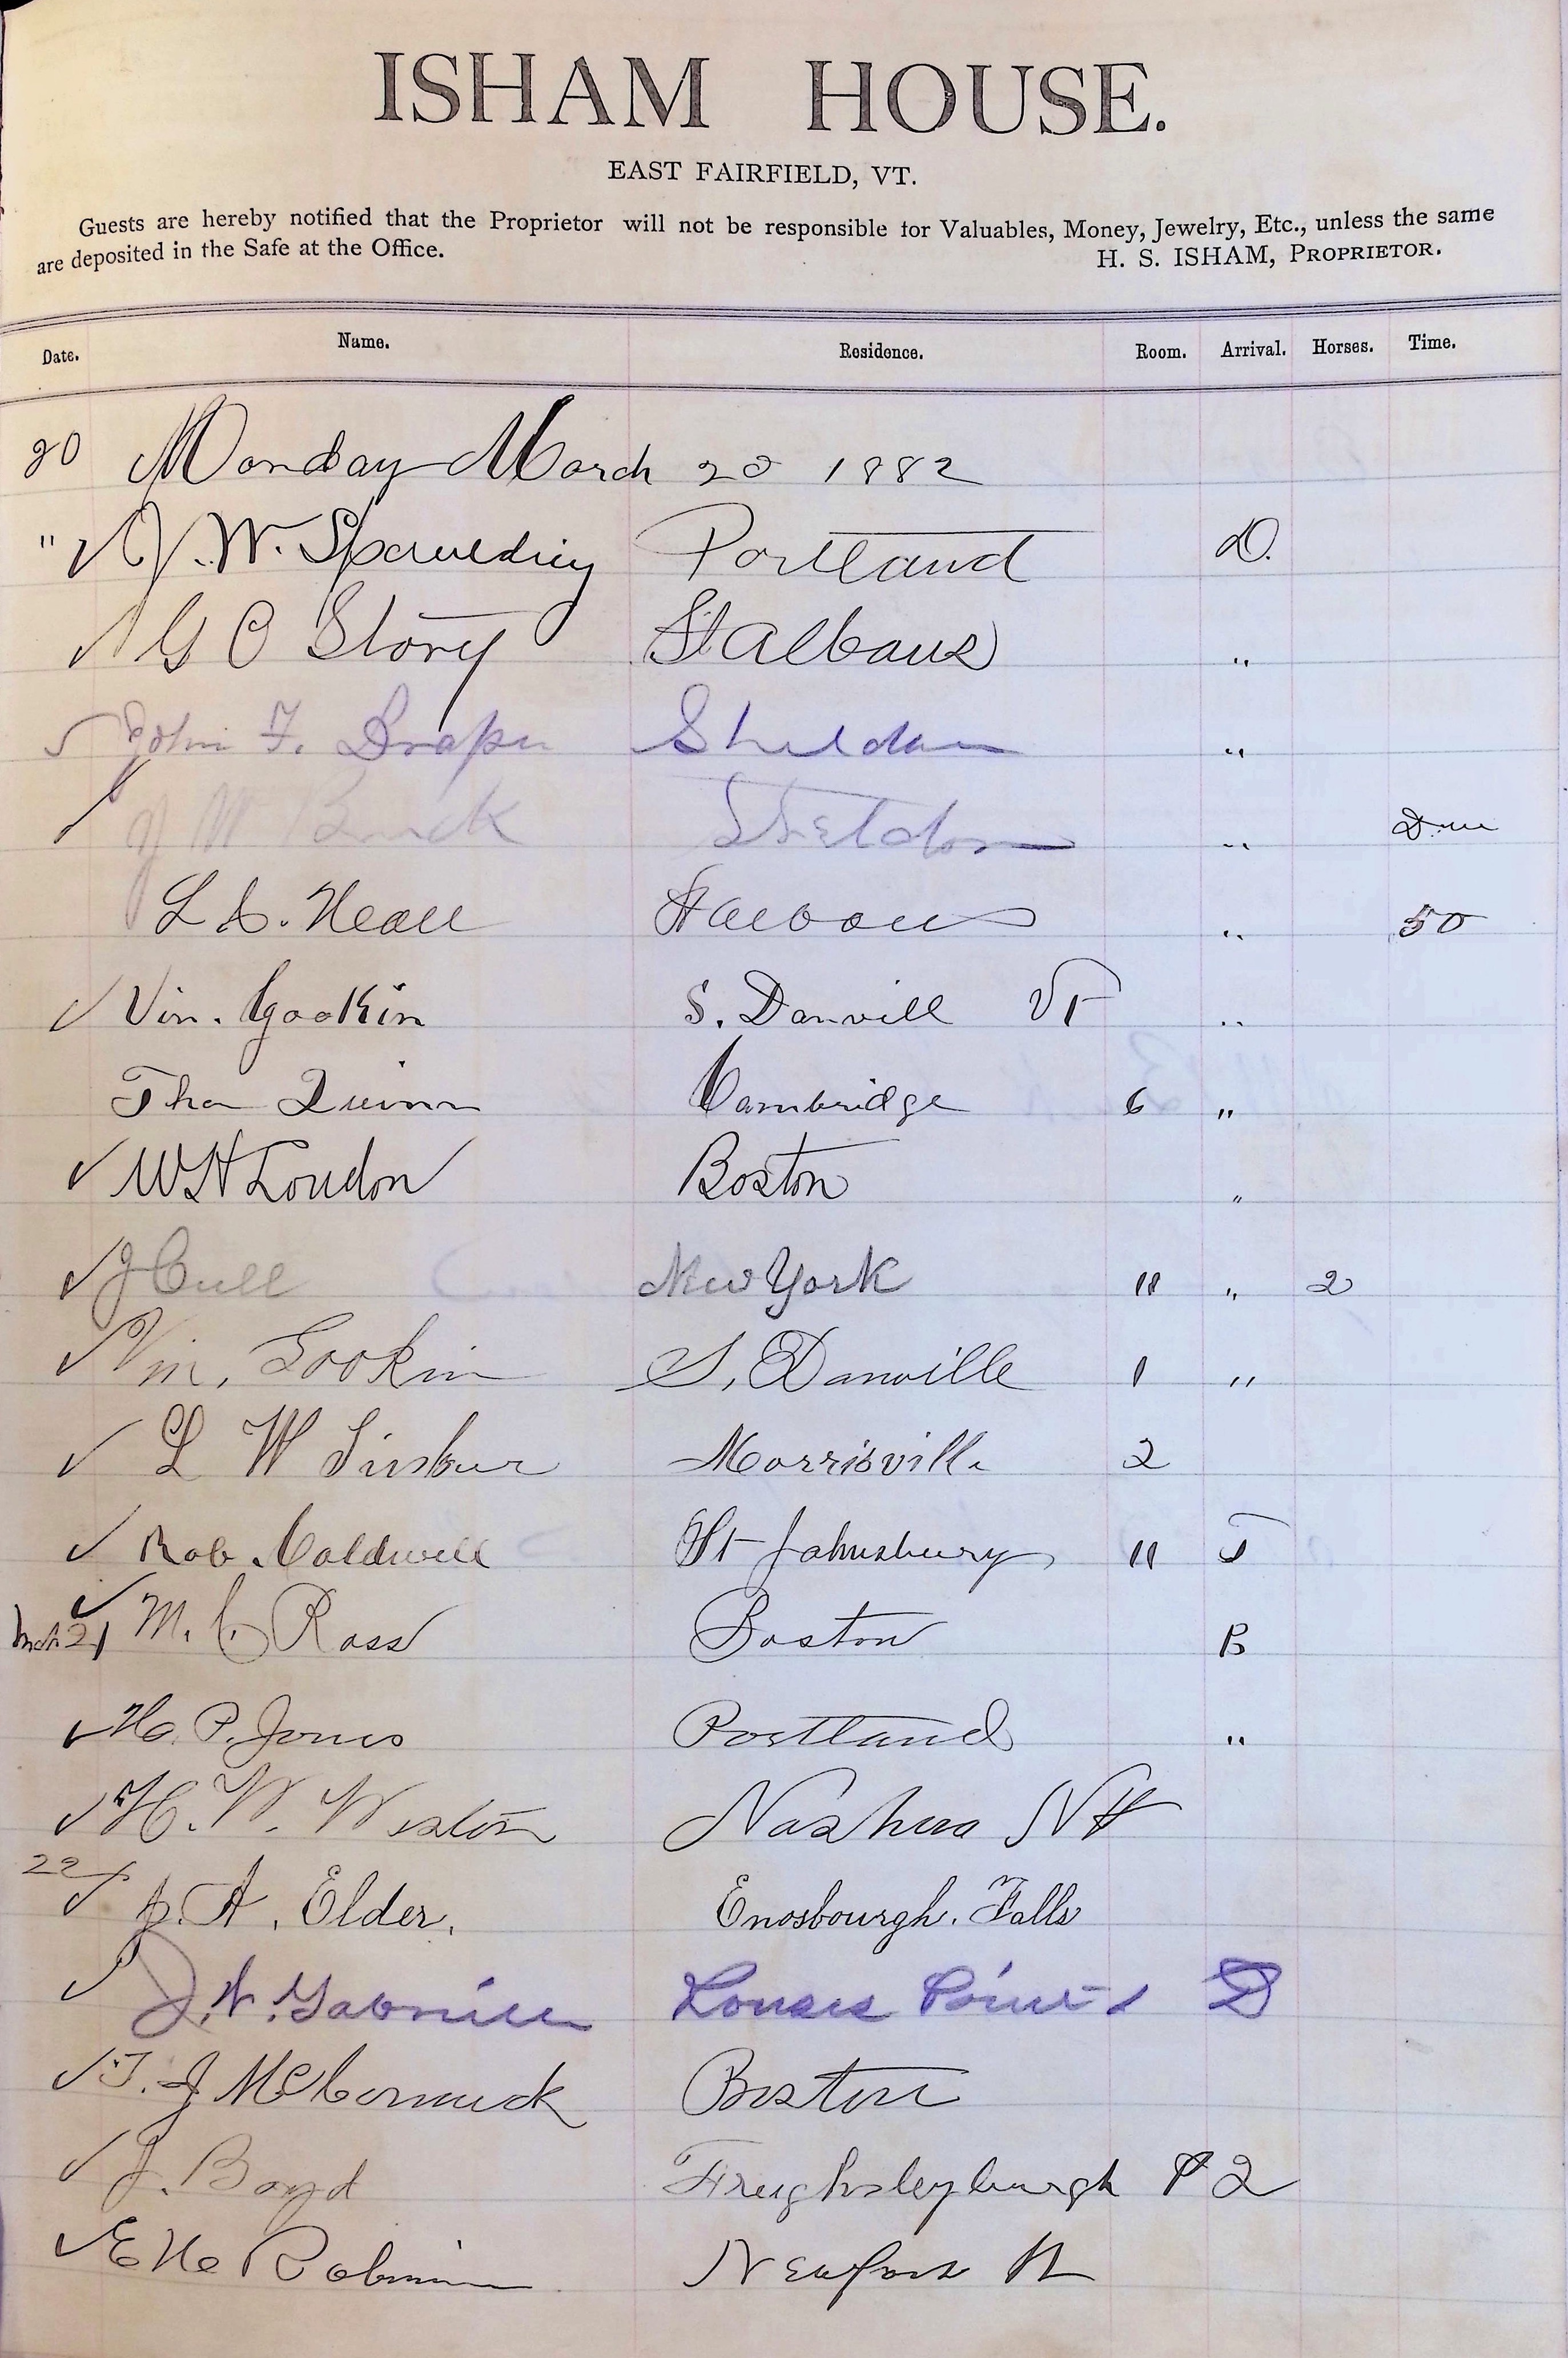 ISHAM HOUSE.
EAST FAIRFIELD, VT.
Guests are hereby notified that the Proprietor will not be responsible for Valuables, Money, Jewelry, Etc., unless the same
are deposited in the Safe at the Office.
H. S. ISHAM, PROPRIETOR.
Date. Name. Residence. Room. Arrival. Horses. Time.
20 Monday March 20 1882
" J. W. Spaulding Portland D.
G O Story St Albans "
John F. Draper Sheldon "
J W Buck Sheldon " Due
L S. Neall St Albans " 50
Vin. Gookin S. Danvill Vt "
Tho Quinn Cambridge 6 "
W H Loudon Boston "
J Cull New York 11 " 2
Vin. Gookin S, Danville 1 "
L W Morrisville 2
Rob. Caldwell St Johnsbury 11 T
Mch 21 M. C. Ross Boston B
H. P. Jones Portland "
H. W. Weston Nashua NH
22 A. Elder. Enosbourgh. Falls
J. N. Rouses Point D
T. J McCormick Boston
J. Boyd Freighsleyburgh P 2
E H Robinson Newport Vt